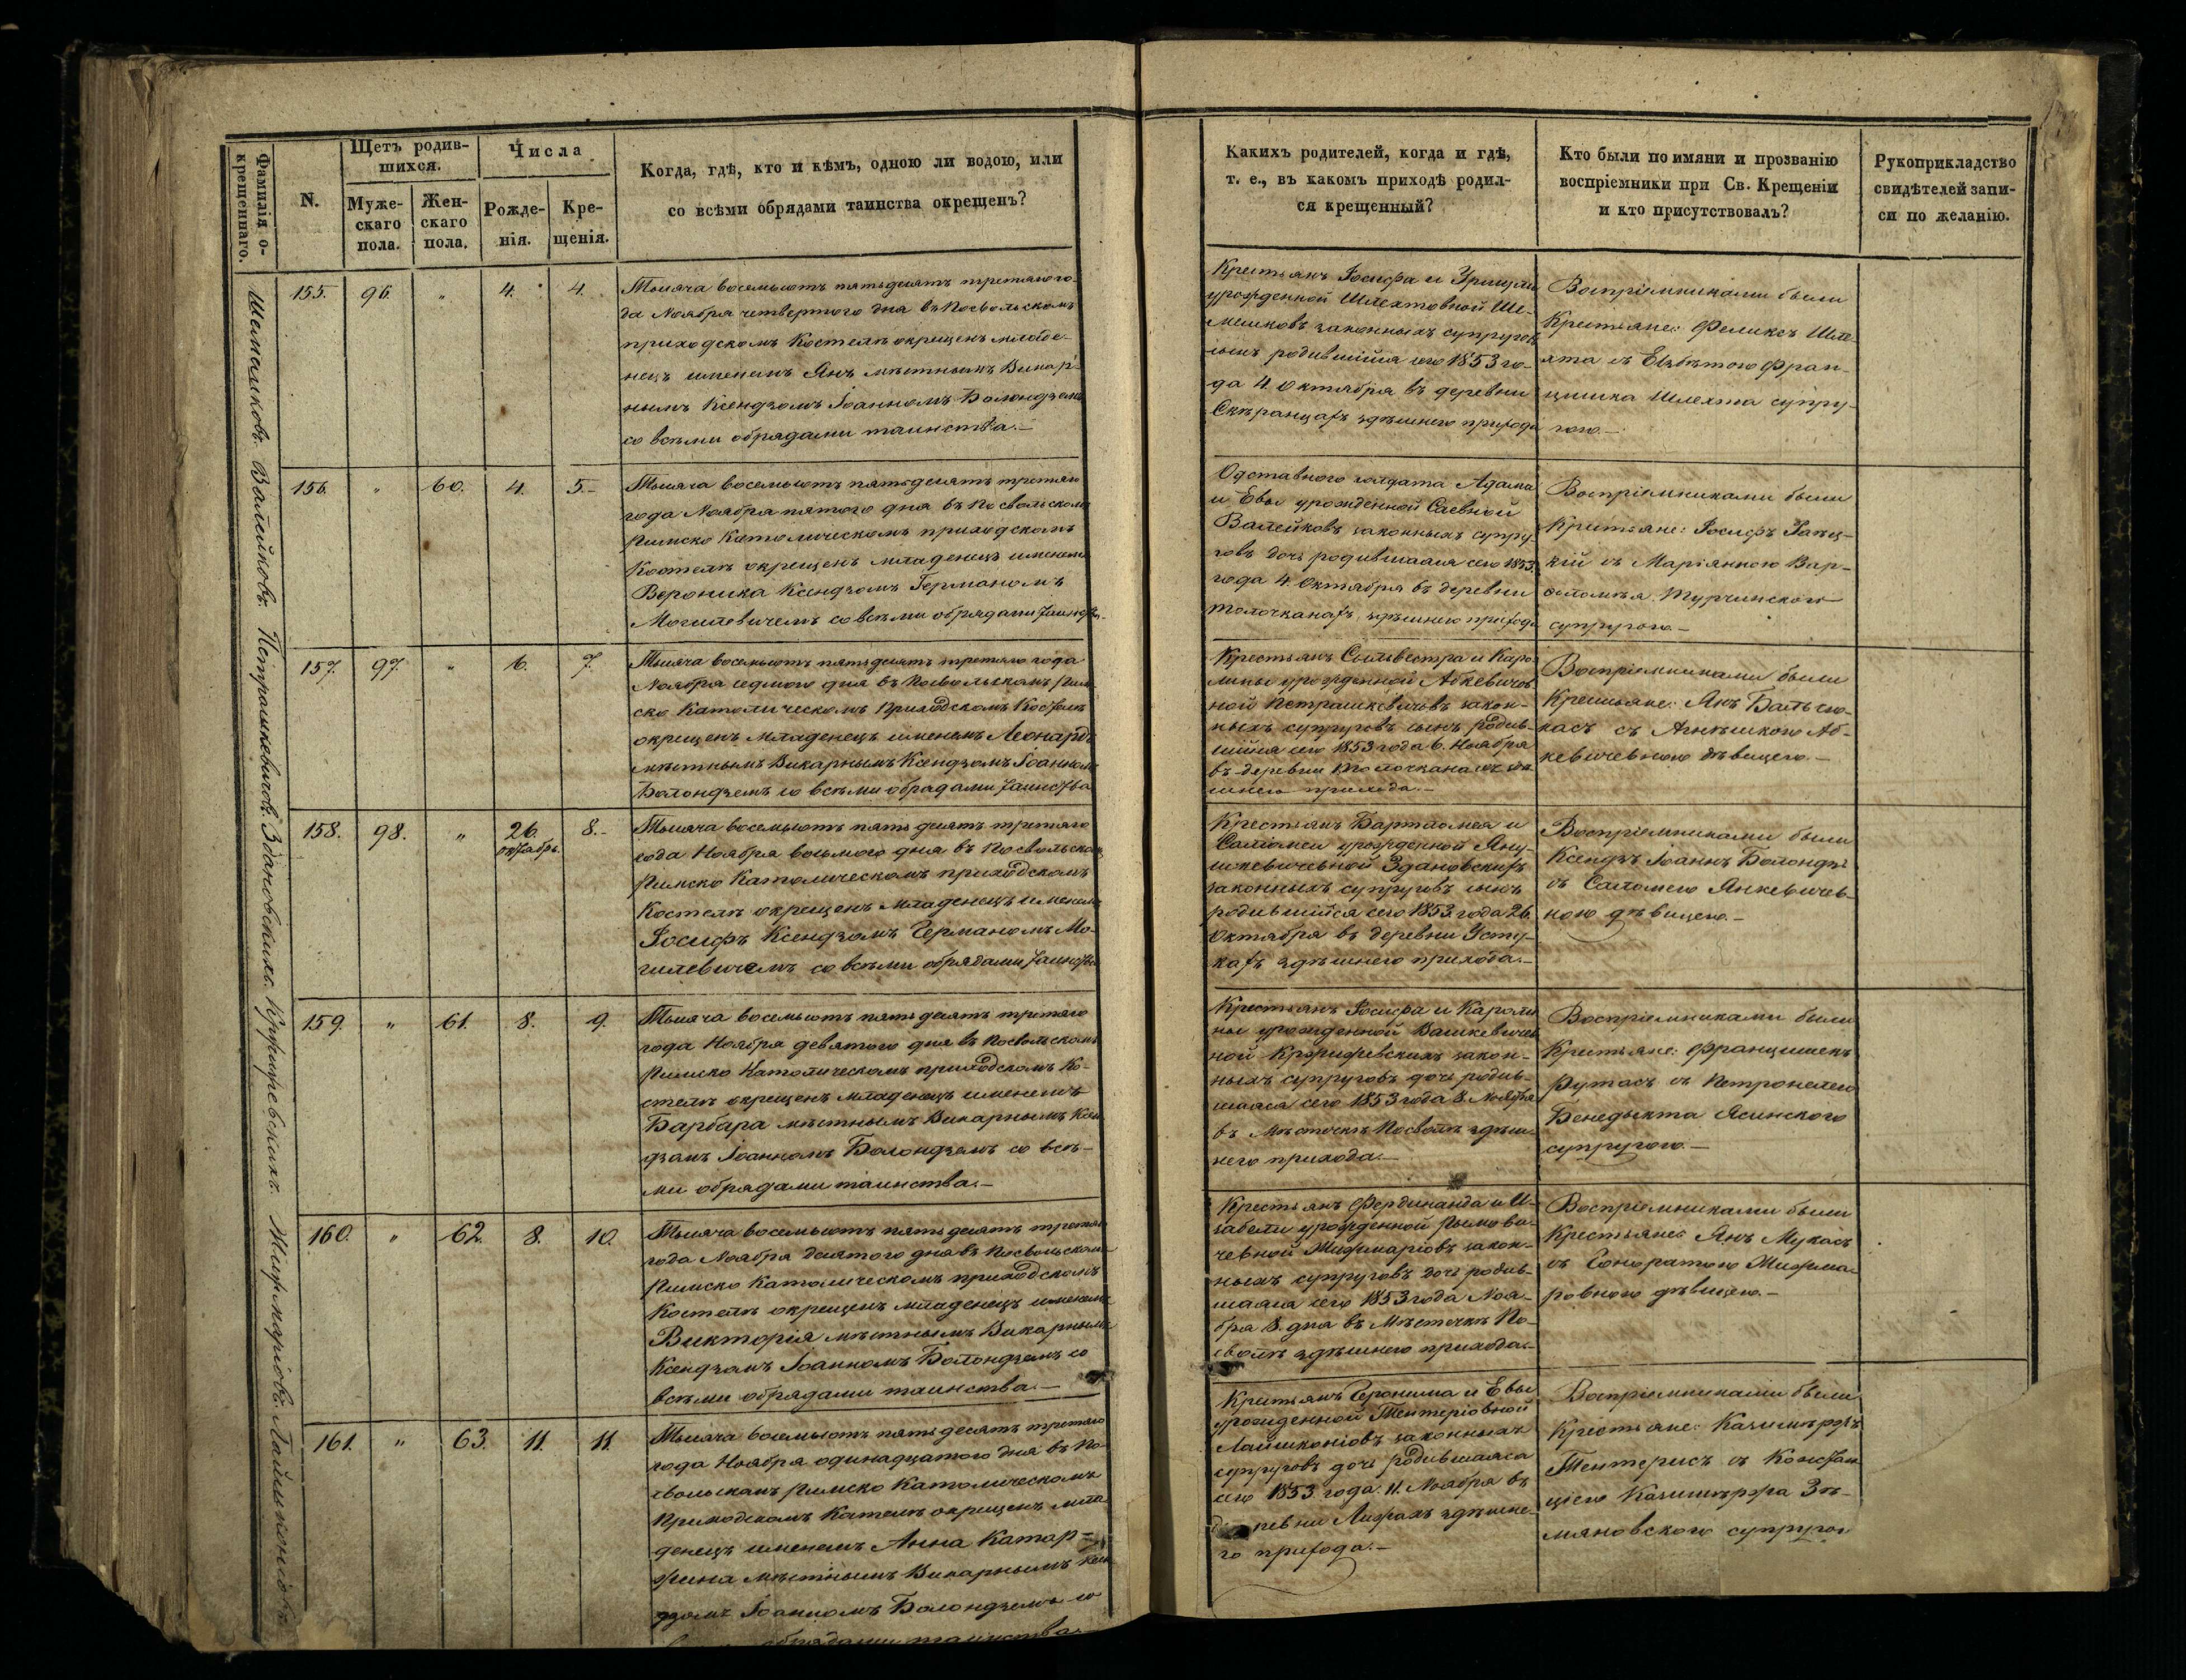 Фамилія о-
крещеннаго.
N.
Щетъ родив-
шихся.
Муже-
скаго
пола.
Жен-
скаго
пола.
Числа
Рожде-
нія.
Кре-
щенія.
Когда, гдѣ, кто и кѣмъ, одною ли водою, или
со всѣми обрядами таинства окрещенъ?
Какихъ родителей, когда и гдѣ,
т. е., въ какомъ приходѣ родил-
ся крещенный?
Кто были по имяни и прозванію
воспріемники при Св. Крещеніи
и кто присутствовалъ?
Рукоприкладство
свидѣтелей запи-
си по желанію.
Шемешковъ.
155. 96. " 4. 4.
Тысяча восемьсотъ пятьдесятъ третяго го-
да Ноября четвертого дня въ Посвольскомъ
приходскомъ Костелѣ окрещенъ младе-
нецъ именемъ Янъ мѣстнымъ Викар-
нымъ Ксендзомъ Іоанномъ Болондземъ
со всѣми обрядами таинства.—
Крестьянъ Іосифа и Уршули
урожденной Шлехтовной Ше-
мешковъ законныхъ супруговъ
сынъ родившійся сего 1853 го-
да 4. Октября въ деревни
здѣшнего прихода
Воспріемниками были
Крестьяне: Феликсъ Шле-
хта съ Ельзбѣтою Фран-
цишка Шлехта супру-
гою.—
Валейковъ.
156. " 60. 4. 5.—
Тысяча восемьсотъ пятьдесятъ третяго
года Ноября пятого дня въ Посвольскомъ
Римско Католическомъ приходскомъ
Костелѣ окрещенъ младенецъ именемъ
Вероника Ксендзомъ Германомъ
Могилевичемъ со всѣми обрядами таинства.
Одставного солдата Адама
и Евы урожденной Саевной
Валейковъ законныхъ супру-
говъ дочь родившаяся сего 1853.
года 4. Октября въ деревни
Толочканахъ здѣшнего прихода
Воспріемниками были
Крестьяне: Іосифъ
кій съ Маріянною Вар-
фоломѣя Турчинского
супругою.—
Петрашкевичовъ.
157. 97. " 6. 7.
Тысяча восемьсотъ пятьдесятъ третяго года
Ноября седмого дня въ Посвольскомъ Рим-
ско Католическомъ Приходскомъ Костелѣ
окрещенъ младенецъ именемъ Леонардъ
мѣстнымъ Викарнымъ Ксендзомъ Іоанномъ
Болондземъ со всѣми обрадами таинства
Крестьянъ Сыльвестра и Каро-
лины урожденной Абкевичов-
ной Петрашкевичовъ закон-
ныхъ супруговъ сынъ родив-
шійся сего 1853 года 6. Ноября
въ деревни Толочканахъ здѣ-
шнего прихода.—
Воспріемниками были
Крестьяне: Янъ Бальсю-
касъ съ Агнѣшкою Аб-
кевичевною дѣвицею.—
Здановскихъ.
158. 98. " 26. октабрь 8.—
Тысяча восемьсотъ пять десятъ третяго
года Ноября восьмого дня въ Посвольскомъ
Римско Католическомъ приходскомъ
Костелѣ окрещенъ младенецъ именемъ
Іосифъ Ксендзомъ Германомъ Мо-
гилевичемъ со всѣми обрядами таинства
Крестьянъ Бартломея и
Саломеи урожденной Яну-
шкевичевной Здановскихъ
законныхъ супруговъ сынъ
родившійся сего 1853 года 26.
Октября въ деревни Усту-
кахъ здѣшнего прихода.—
Воспріемниками были
Ксендзъ Іоаннъ Болондзь
съ Саломею Янкевичев-
ною дѣвицею.—
159. " 61. 8. 9.
Тысяча восемьсотъ пять десятъ третяго
года Ноября девятого дня въ Посвольскомъ
Римско Католическомъ приходскомъ Ко-
стелѣ окрещенъ младенецъ именемъ
Барбара мѣстнымъ Викарнымъ Ксен-
дзомъ Іоанномъ Болондземъ со всѣ-
ми обрядами таинства.—
Крестьянъ Іосифа и Кароли-
ны урожденной Вашкевичев-
ной закон-
ныхъ супруговъ дочь родив-
шаяса сего 1853 года 8. Ноября
въ Мѣстечкѣ Посволѣ здѣш-
него прихода.—
Воспріемниками были
Крестьяне: Францишекъ
Рутасъ съ Петронелею
Бенедыкта Ясинского
супругою.—
Жифмаріовъ.
160. " 62. 8. 10.
Тысяча восемьсотъ пять десятъ третяго
года Ноября десятого дня въ Посвольскомъ
Римско Католическомъ приходскомъ
Костелѣ окрещенъ младенецъ именемъ
Викторія мѣстнымъ Викарнымъ
Ксендзомъ Іоанномъ Болондземъ со
всѣми обрядами таинства.—
Крестьянъ Фердинанда и И-
забели урожденной Рымови-
чевной Жифмаріовъ закон-
ныхъ супруговъ дочь родив-
шаяся сего 1853 года Ноя-
бра 8. дня въ Мѣстечкѣ По-
сволѣ здѣшнего прихода.—
Воспріемниками были
Крестьяне Янъ Мукасъ
съ Гоноратою Жифма-
ровною дѣвицею.—
Лайшконіовъ.
161. " 63. 11. 11.
Тысяча восемьсотъ пять десятъ третяго
года Ноября одинадцатого дня въ По-
свольскомъ Римско Католическомъ
Приходскомъ Костелѣ окрещенъ мла-
денецъ именемъ Анна Катар-
жина мѣстнымъ Викарнымъ Ксен-
дзомъ Іоанномъ Болондземъ со
обрядами таинства
Крестьянъ Геронима и Евы
урожденной Тентеріовной
Лайшконіовъ законныхъ
супруговъ дочь родившаяса
сего 1853 года 11. Ноября въ
деревни здѣшне-
го прихода.—
Воспріемниками были
Крестьяне: Казимѣръ
Тентерисъ съ Констан-
ціею Казимѣра Зѣ-
мяновского супругою